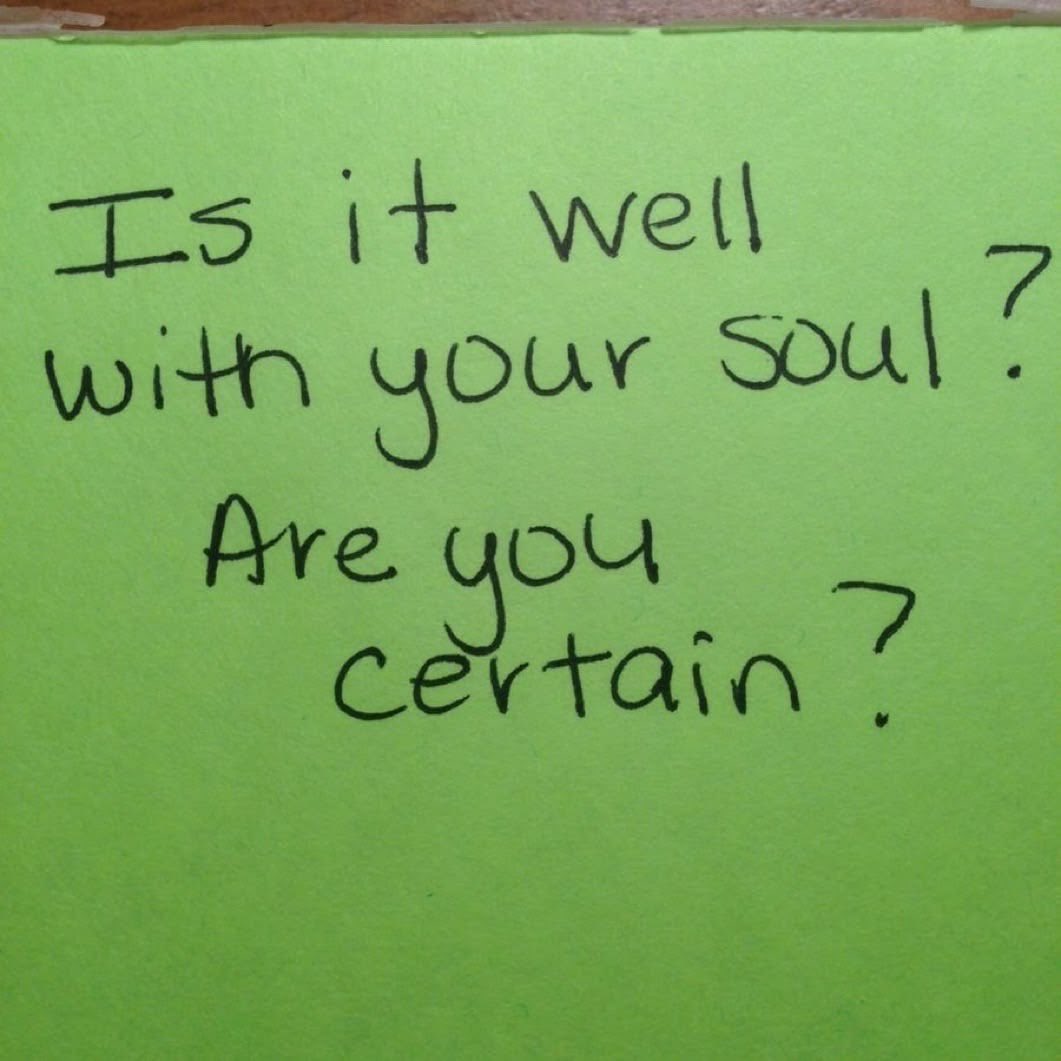 Is it well
with your soul?
Are you
certain?